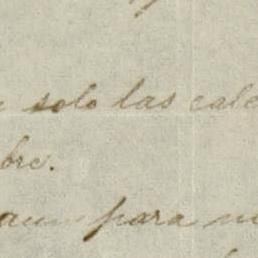 solo las cale
bre.
aun para